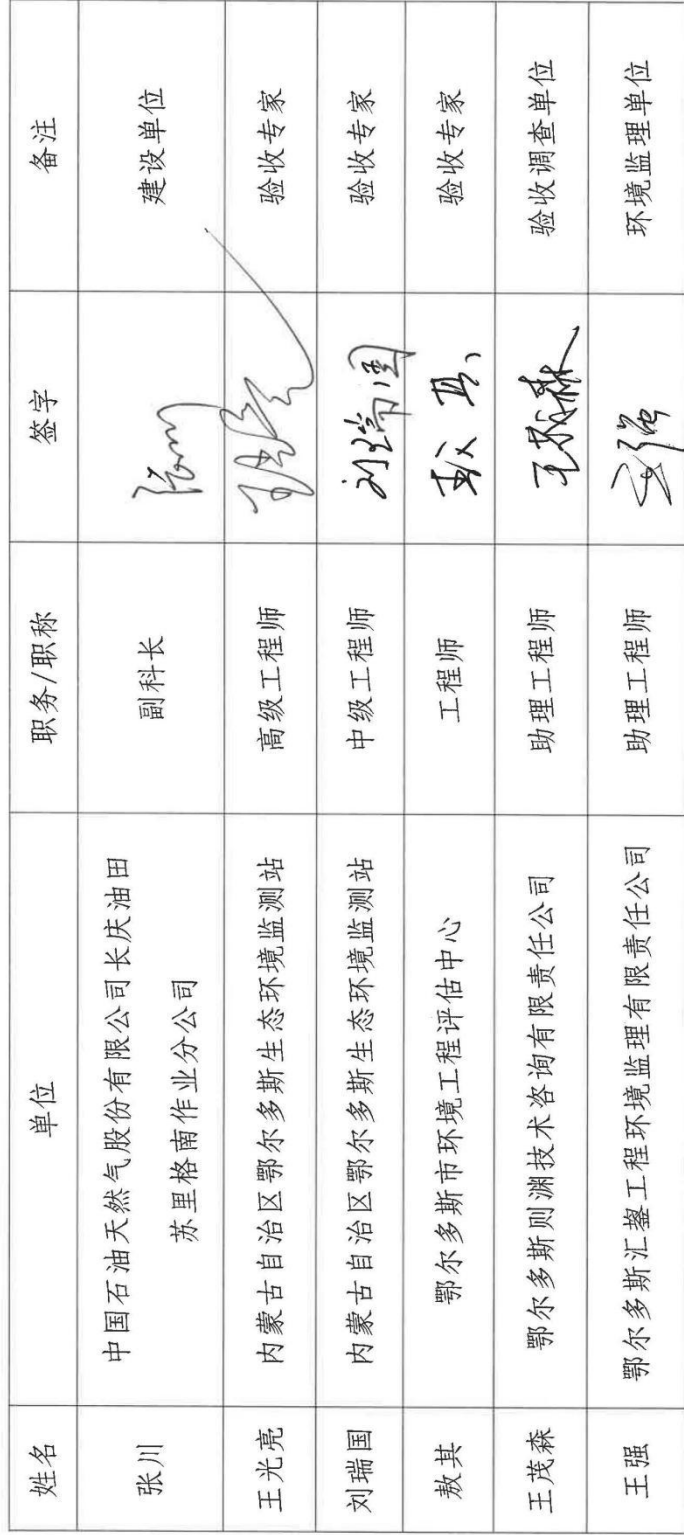 姓名 单位 职务/职称 签字 备注
张川 中国石油天然气股份有限公司长庆油田 副科长 建设单位
苏里格南作业分公司
王光亮 内蒙古自治区鄂尔多斯生态环境监测站 高级工程师 验收专家
刘瑞国 内蒙古自治区鄂尔多斯生态环境监测站 中级工程师 刘瑞国 验收专家
敖其 鄂尔多斯市环境工程评估中心 工程师 敖其 验收专家
王茂森 鄂尔多斯则渊技术咨询有限责任公司 助理工程师 王茂森 验收调查单位
王强 鄂尔多斯汇鋆工程环境监理有限责任公司 助理工程师 王强 环境监理单位